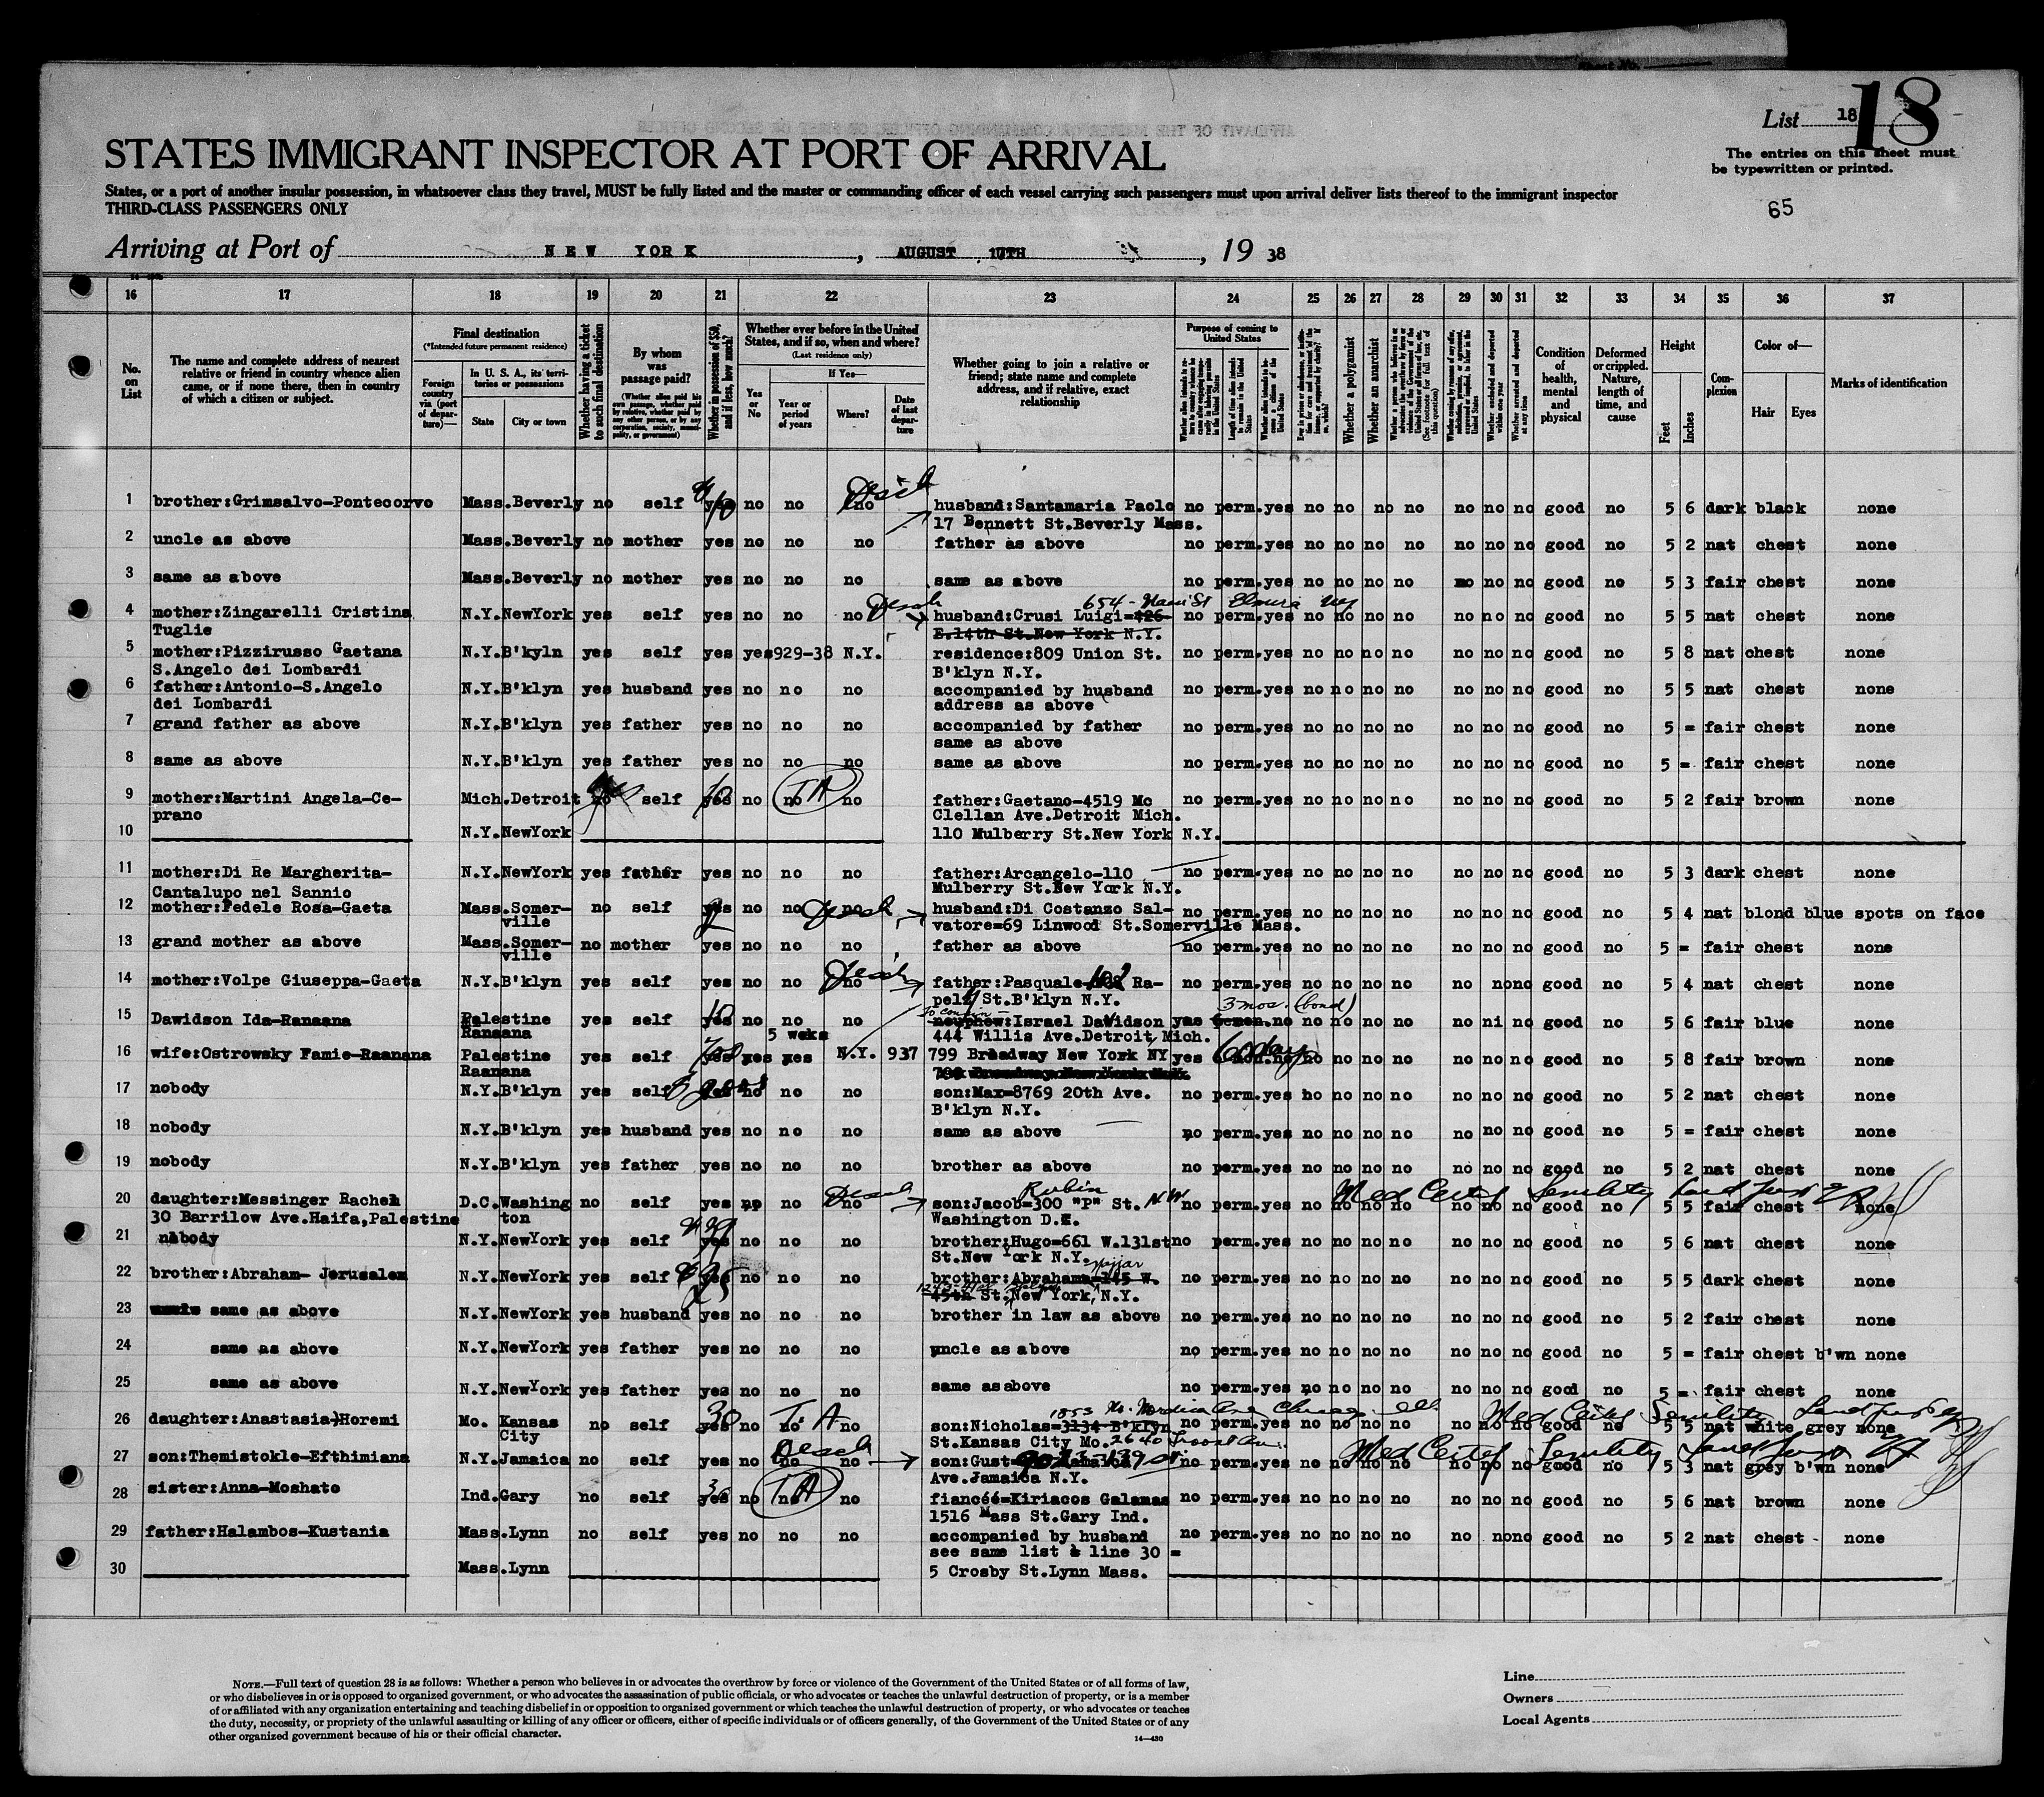 List 18
18
The entries on this sheet must
be typewritten or printed.
65
STATES IMMIGRANT INSPECTOR AT PORT OF ARRIVAL
States, or a port of another insular possession, in whatsoever class they travel, MUST be fully listed and the master or commanding officer of each vessel carrying such passengers must upon arrival deliver lists thereof to the immigrant inspector
THIRD-CLASS PASSENGERS ONLY
Arriving at Port of NEW YORK, AUGUST 17TH, 19 38
16 17 18 19 20 21 22 23 24 25 26 27 28 29 30 31 32 33 34 35 36 37
No. on List
The name and complete address of nearest relative or friend in country whence alien came, or if none there, then in country of which a citizen or subject.
Final destination
(*Intended future permanent residence)
Foreign country via (port of departure)—
In U. S. A., its territories or possessions
State City or town
Whether having a ticket to such final destination
By whom was passage paid?
(Whether alien paid his own passage, whether paid by relative, whether paid by any other person, or by any corporation, society, municipality, or government)
Whether in possession of $50, and if less, how much?
Whether ever before in the United States, and if so, when and where?
(Last residence only)
Yes or No
If Yes—
Year or period of years
Where?
Date of last departure
Whether going to join a relative or friend; state name and complete address, and if relative, exact relationship
Purpose of coming to United States
Length of time alien intends to remain in the United States
Whether alien intends to become a citizen of the United States
Whether a polygamist
Whether an anarchist
Whether excluded and deported within one year
Whether arrested and deported at any time
Condition of health, mental and physical
Deformed or crippled. Nature, length of time, and cause
Height
Feet Inches
Complexion
Color of—
Hair Eyes
Marks of identification
1 brother:Grimsalvo-Pontecorvo Mass.Beverly no self no no no husband:Santamaria Paolo no perm.yes no no no no no no no good no 5 6 dark black none
17 Bennett St.Beverly Mass.
2 uncle as above Mass.Beverly no mother yes no no no father as above no perm.yes no no no no no no no good no 5 2 nat chest none
3 same as above Mass.Beverly no mother yes no no no same as above no perm.yes no no no no no no no good no 5 3 fair chest none
654 - Main St Elmira
4 mother:Zingarelli Cristina N.Y.NewYork yes self yes no no no husband:Crusi Luigi=426- no perm.yes no no no no no no no good no 5 5 nat chest none
Tuglie E.14th St.New York N.Y.
5 mother:Pizzirusso Gaetana N.Y.B'kyln yes self yes yes 929-38 N.Y. residence:809 Union St. no perm.yes no no no no no no no good no 5 8 nat chest none
S.Angelo dei Lombardi B'klyn N.Y.
6 father:Antonio-S.Angelo N.Y.B'klyn yes husband yes no no no accompanied by husband no perm.yes no no no no no no no good no 5 5 nat chest none
dei Lombardi address as above
7 grand father as above N.Y.B'klyn yes father yes no no no accompanied by father no perm.yes no no no no no no no good no 5 = fair chest none
same as above
8 same as above N.Y.B'klyn yes father yes no no no same as above no perm.yes no no no no no no no good no 5 = fair chest none
9 mother:Martini Angela-Ce- Mich.Detroit self 10 no no TA no father:Gaetano-4519 Mc no perm.yes no no no no no no no good no 5 2 fair brown none
prano Clellan Ave.Detroit Mich.
10 N.Y.NewYork 110 Mulberry St.New York N.Y.
11 mother:Di Re Margherita- N.Y.NewYork yes father yes no no no father:Arcangelo-110 no perm.yes no no no no no no no good no 5 3 dark chest none
Cantalupo nel Sannio Mulberry St.New York N.Y.
12 mother:Fedele Rosa-Gaeta Mass.Somer- no self no no no husband:Di Costanzo Sal- no perm.yes no no no no no no no good no 5 4 nat blond blue spots on face
ville vatore=69 Linwood St.Somerville Mass.
13 grand mother as above Mass.Somer- no mother yes no no no father as above no perm.yes no no no no no no no good no 5 = fair chest none
ville
14 mother:Volpe Giuseppa-Gaeta N.Y.B'klyn yes self yes no no no father:Pasquale- 102 Ra- no perm.yes no no no no no nono good no 5 4 nat chest none
pely St.B'klyn N.Y.
3 mos. (bond)
to cousin
15 Dawidson Ida-Ranaana Palestine yes self 10 no no no newphew:Israel Davidson no no no no no no ni no good no 5 6 fair blue none
Ranaana 5 weks 444 Willis Ave.Detroit, Mich.
16 wife:Ostrowsky Famie-Raanana Palestine yes self yes yes N.Y. 937 799 Broadway New York NY yes 60 days no no no no no no no good no 5 8 fair brown none
Raanana
17 nobody N.Y.B'klyn yes self no no no son:Max=8769 20th Ave. no perm.yes no no no no no no no good no 5 2 nat chest none
B'klyn N.Y.
18 nobody N.Y.B'klyn yes husband yes no no no same as above no perm.yes no no no no no no no good no 5 = fair chest none
19 nobody N.Y.B'klyn yes father yes no no no brother as above no perm.yes no no no no no no no good no 5 2 nat chest none
Rubin
20 daughter:Messinger Rachel D.C.Washing no self yes no no no son:Jacob=300 "P" St. N.W no perm.yes no no no no no no no good no 5 5 fair chest none
Med Certf Senility
30 Barrilow Ave.Haifa,Palestine ton Washington D.C.
21 nobody N.Y.NewYork yes self yes no no no brother:Hugo=661 W.131st no perm.yes no no no no no no no good no 5 6 nat chest none
St.New York N.Y.
22 brother:Abraham- Jerusalem N.Y.NewYork yes self 25 no no no brother:Abrahama=145 W. no perm.yes no no no no no no no good no 5 5 dark chest none
45th St.New York, N.Y.
23 same as above N.Y.NewYork yes husband yes no no no brother in law as above no perm.yes no no no no no no no good no 5 2 fair chest none
24 same as above N.Y.NewYork yes father yes no no no uncle as above no perm.yes no no no no no no no good no 5 = fair chest b'wn none
25 same as above N.Y.NewYork yes father yes no no no same as above no perm.yes no no no no no no no good no 5 = fair chest none
26 daughter:Anastasia-Horemi Mo. Kansas no self 30 no no T.A. no son:Nicholas=3134-B'klyn no perm.yes no no no no no no no good no 5 5 nat white grey none
Med Certf Senility
City St.Kansas City Mo. 2640 Troost Av.
27 son:Themistokle-Efthimiana N.Y.Jamaica no self yes no no no son:Gust= no perm.yes no no no no no no no good no 5 3 nat grey b'wn none
Med Certf Senility
Ave.Jamaica N.Y.
28 sister:Anna-Moshato Ind.Gary no self yes no no TA no fiancéé=Kiriacos Galamas no perm.yes no no no no no no no good no 5 6 nat brown none
1516 Mass St.Gary Ind.
29 father:Halambos-Kustania Mass.Lynn no self yes no no no accompanied by husband no perm.yes no no no no no nono good no 5 2 nat chest none
see same list & line 30 =
30 Mass.Lynn 5 Crosby St.Lynn Mass.
NOTE.—Full text of question 28 is as follows: Whether a person who believes in or advocates the overthrow by force or violence of the Government of the United States or of all forms of law,
or who disbelieves in or is opposed to organized government, or who advocates the assassination of public officials, or who advocates or teaches the unlawful destruction of property, or is a member
of or affiliated with any organization entertaining and teaching disbelief in or opposition to organized government or which teaches the unlawful destruction of property, or who advocates or teaches
the duty, necessity, or propriety of the unlawful assaulting or killing of any officer or officers, either of specific individuals or of officers generally, of the Government of the United States or of any
other organized government because of his or their official character.
14—430
Line
Owners
Local Agents